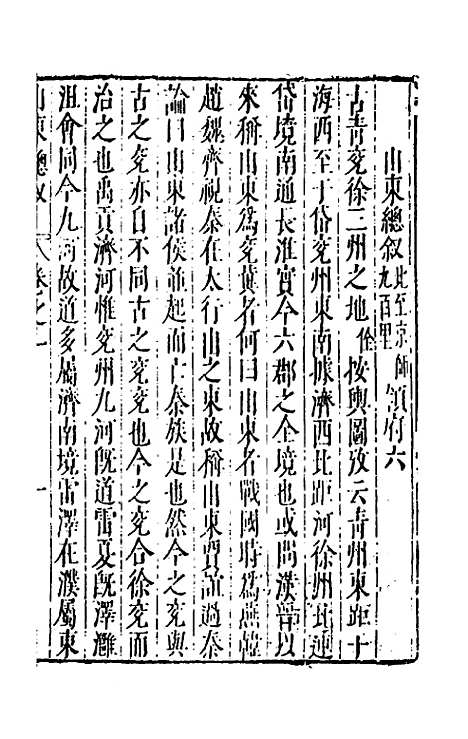 山東總叙北至京師九百里領府六
古青兖徐三州之地 按輿圖攷云青州東距十
海西至于岱兖州東南據濟西北距河徐州北連
岱境南通長淮實今六郡之全境也或問漢晉以
來稱山東爲兖冀名何曰山東名戰國時爲燕韓
趙魏齊視秦在太行山之東故稱山東賈誼過秦
論曰山東諸侯並起而亡秦族是也然今之兖與
古之兖亦自不同古之兖兖也今之兖合徐兖而
治之也禹貢濟河惟兖州九河旣道雷夏旣澤灉
沮會同今九河故道多屬濟南境雷澤在濮屬東
山東總叙 八卷之一 一